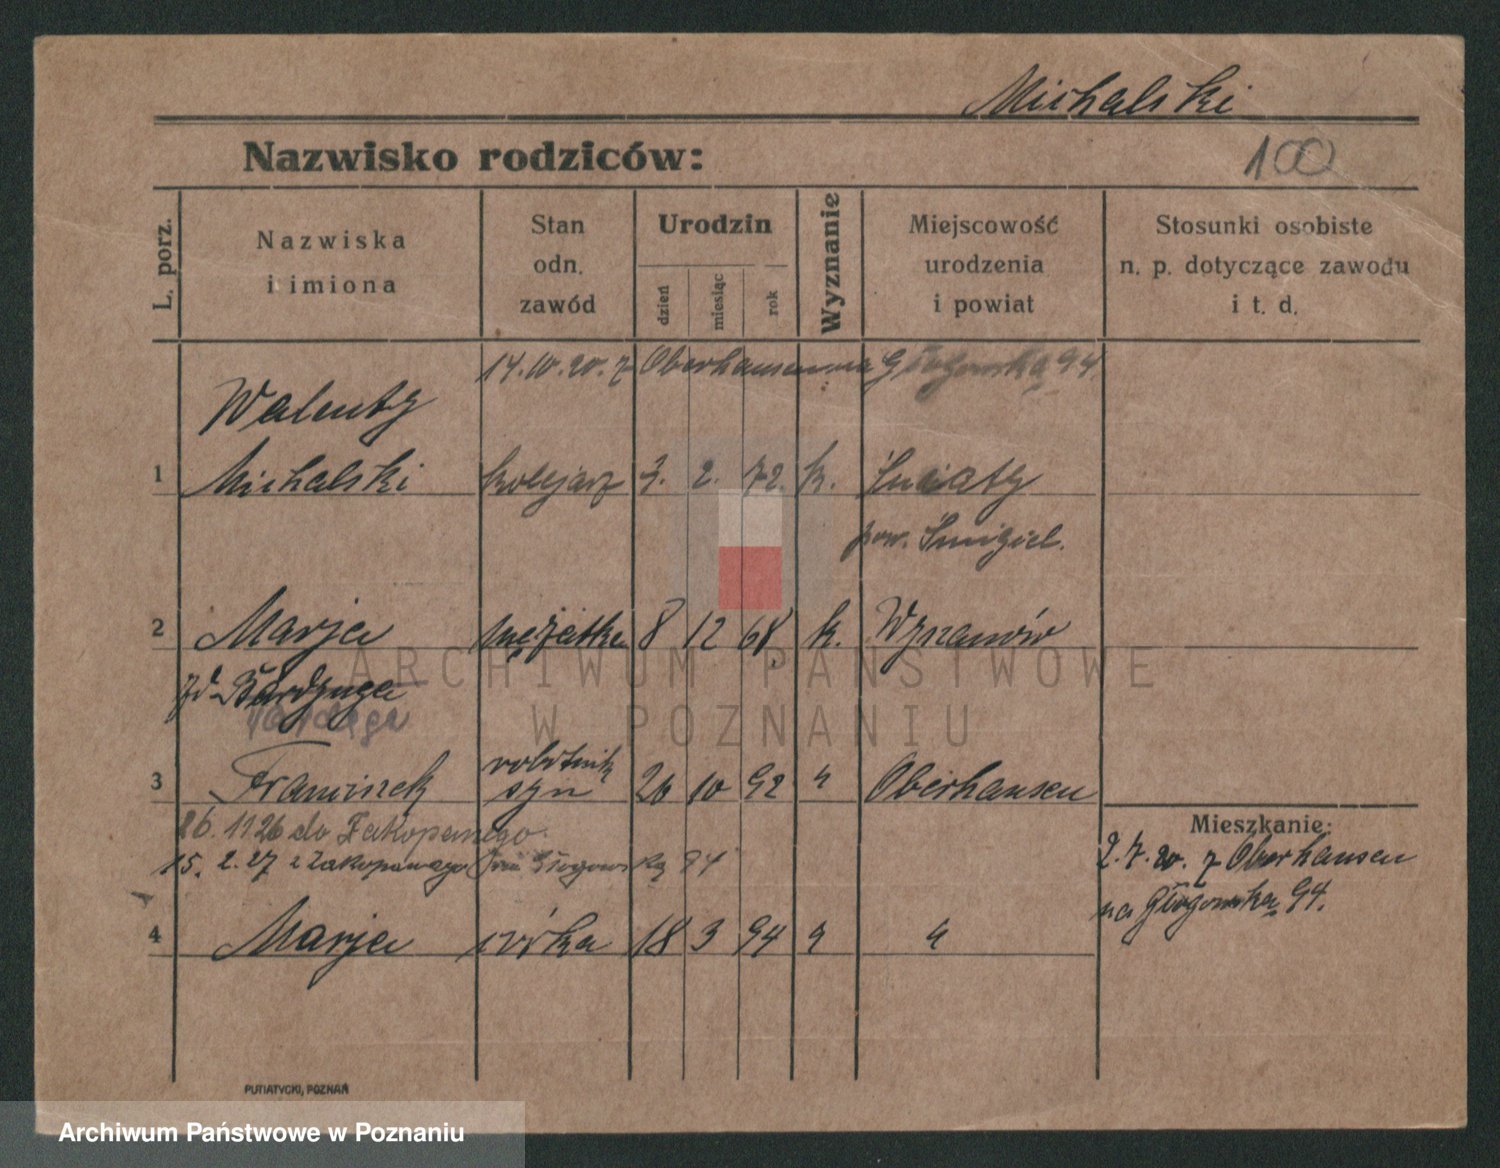 Michalski
100
Nazwisko rodziców:
L. porz.
Nazwiska
i imiona
Stan
odn.
zawód
Urodzin
dzień
miesiąc
rok
Wyznanie
Miejscowość
urodzenia
i powiat
Stosunki osobiste
n. p. dotyczące zawodu
i t. d.
z Oberhausen na Głogowska 94
Walenty
1 Michalski kolejarz 3. 2. 72. k. Śniaty
pow. Śmigiel.
2 Marja mężatka 8 12 68 k.
ARCHIWUM PAŃSTWOWE
W POZNANIU
robotnik
3 Franciszek syn 26 10 92 " Oberhausen
26. 11 26 do Zakopanego.
15. 2. 27 z Zakopanego Głogowską 94
Mieszkanie:
2.7.20. z Oberhausen
na Głogowska 94.
4 Marja córka 18 3 94 " "
PUTIATYCKI, POZNAŃ
Archiwum Państwowe w Poznaniu